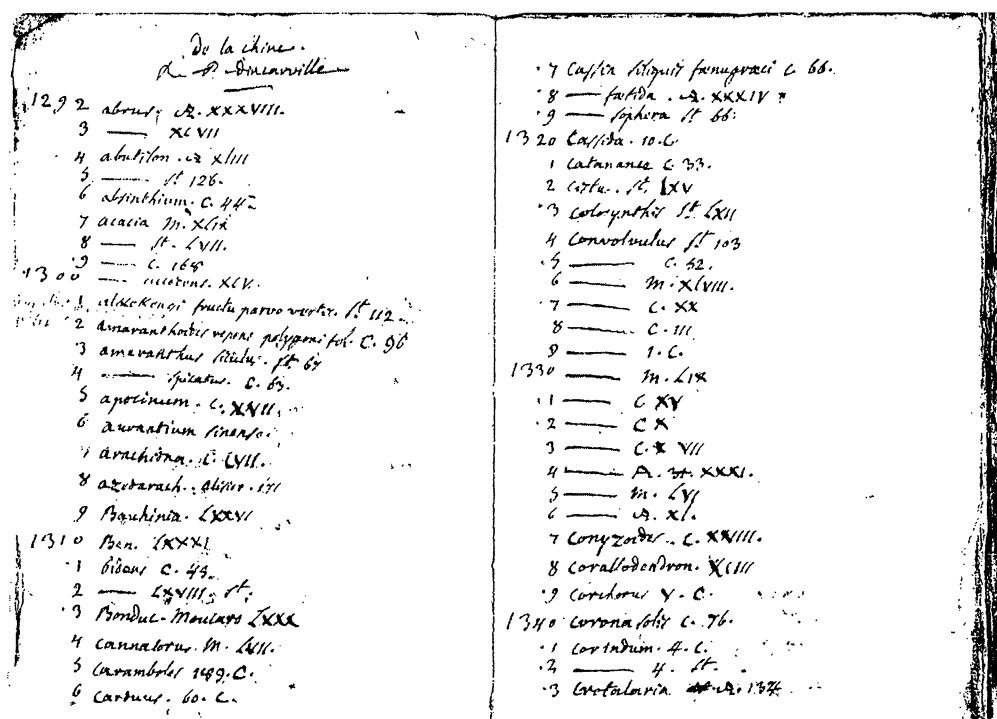 De la chine.
d'incarville
1292 abrus. A. XXXVIII.
3 — XLVII
4 abutilon. A XLIII
5 — St 126.
6 absinthium. C. 44.
7 acacia M. XLIX
8 — St. LVII.
9 — C. 168
1300 — XLV.
1 alkekengi fructu parvo vert. St 112
2 amaranthoides repens polygoni fol. C. 96
3 amaranthus St 67
4 — spicatus. C. 63.
5 apocinum. C. XVII.
6 aurantium sinense.
7 arachidna. C. LVII.
8 azedarach.
9 Bauhinia. LXXVI
1310 Ben. LXXXI
1 bidens C. 45.
2 — LXVIII. St.
3 Bonduc. LXXX
4 cannacorus. M. LVII.
5 Caramboles 189. C.
6 Carduus. 60. C.
7 Cassia siliquis fœnugræci C 66.
8 — fœtida. A. XXXIV
9 — sophera St 66
1320 Cassida. 10. C
1 Catanance C. 33.
2 St. LXV
3 Colocynthis St LXII
4 Convolvulus St 103
5 — C. 52.
6 — M. XLVIII.
7 — C. XX
8 — C. III
9 — 1. C.
1330 — M. LIX
1 — C XV
2 — C X
3 — C. XVII
4 — A. XXXI.
5 — M. LVI
6 — A. XL.
7 Conyzoides. C. XXVIII.
8 Corallodendron. XCIII
9 Corchorus V. C.
1340 Corona solis C. 76.
1 Corindum. 4. C.
2 — 4. St.
3 Crotalaria A. 134